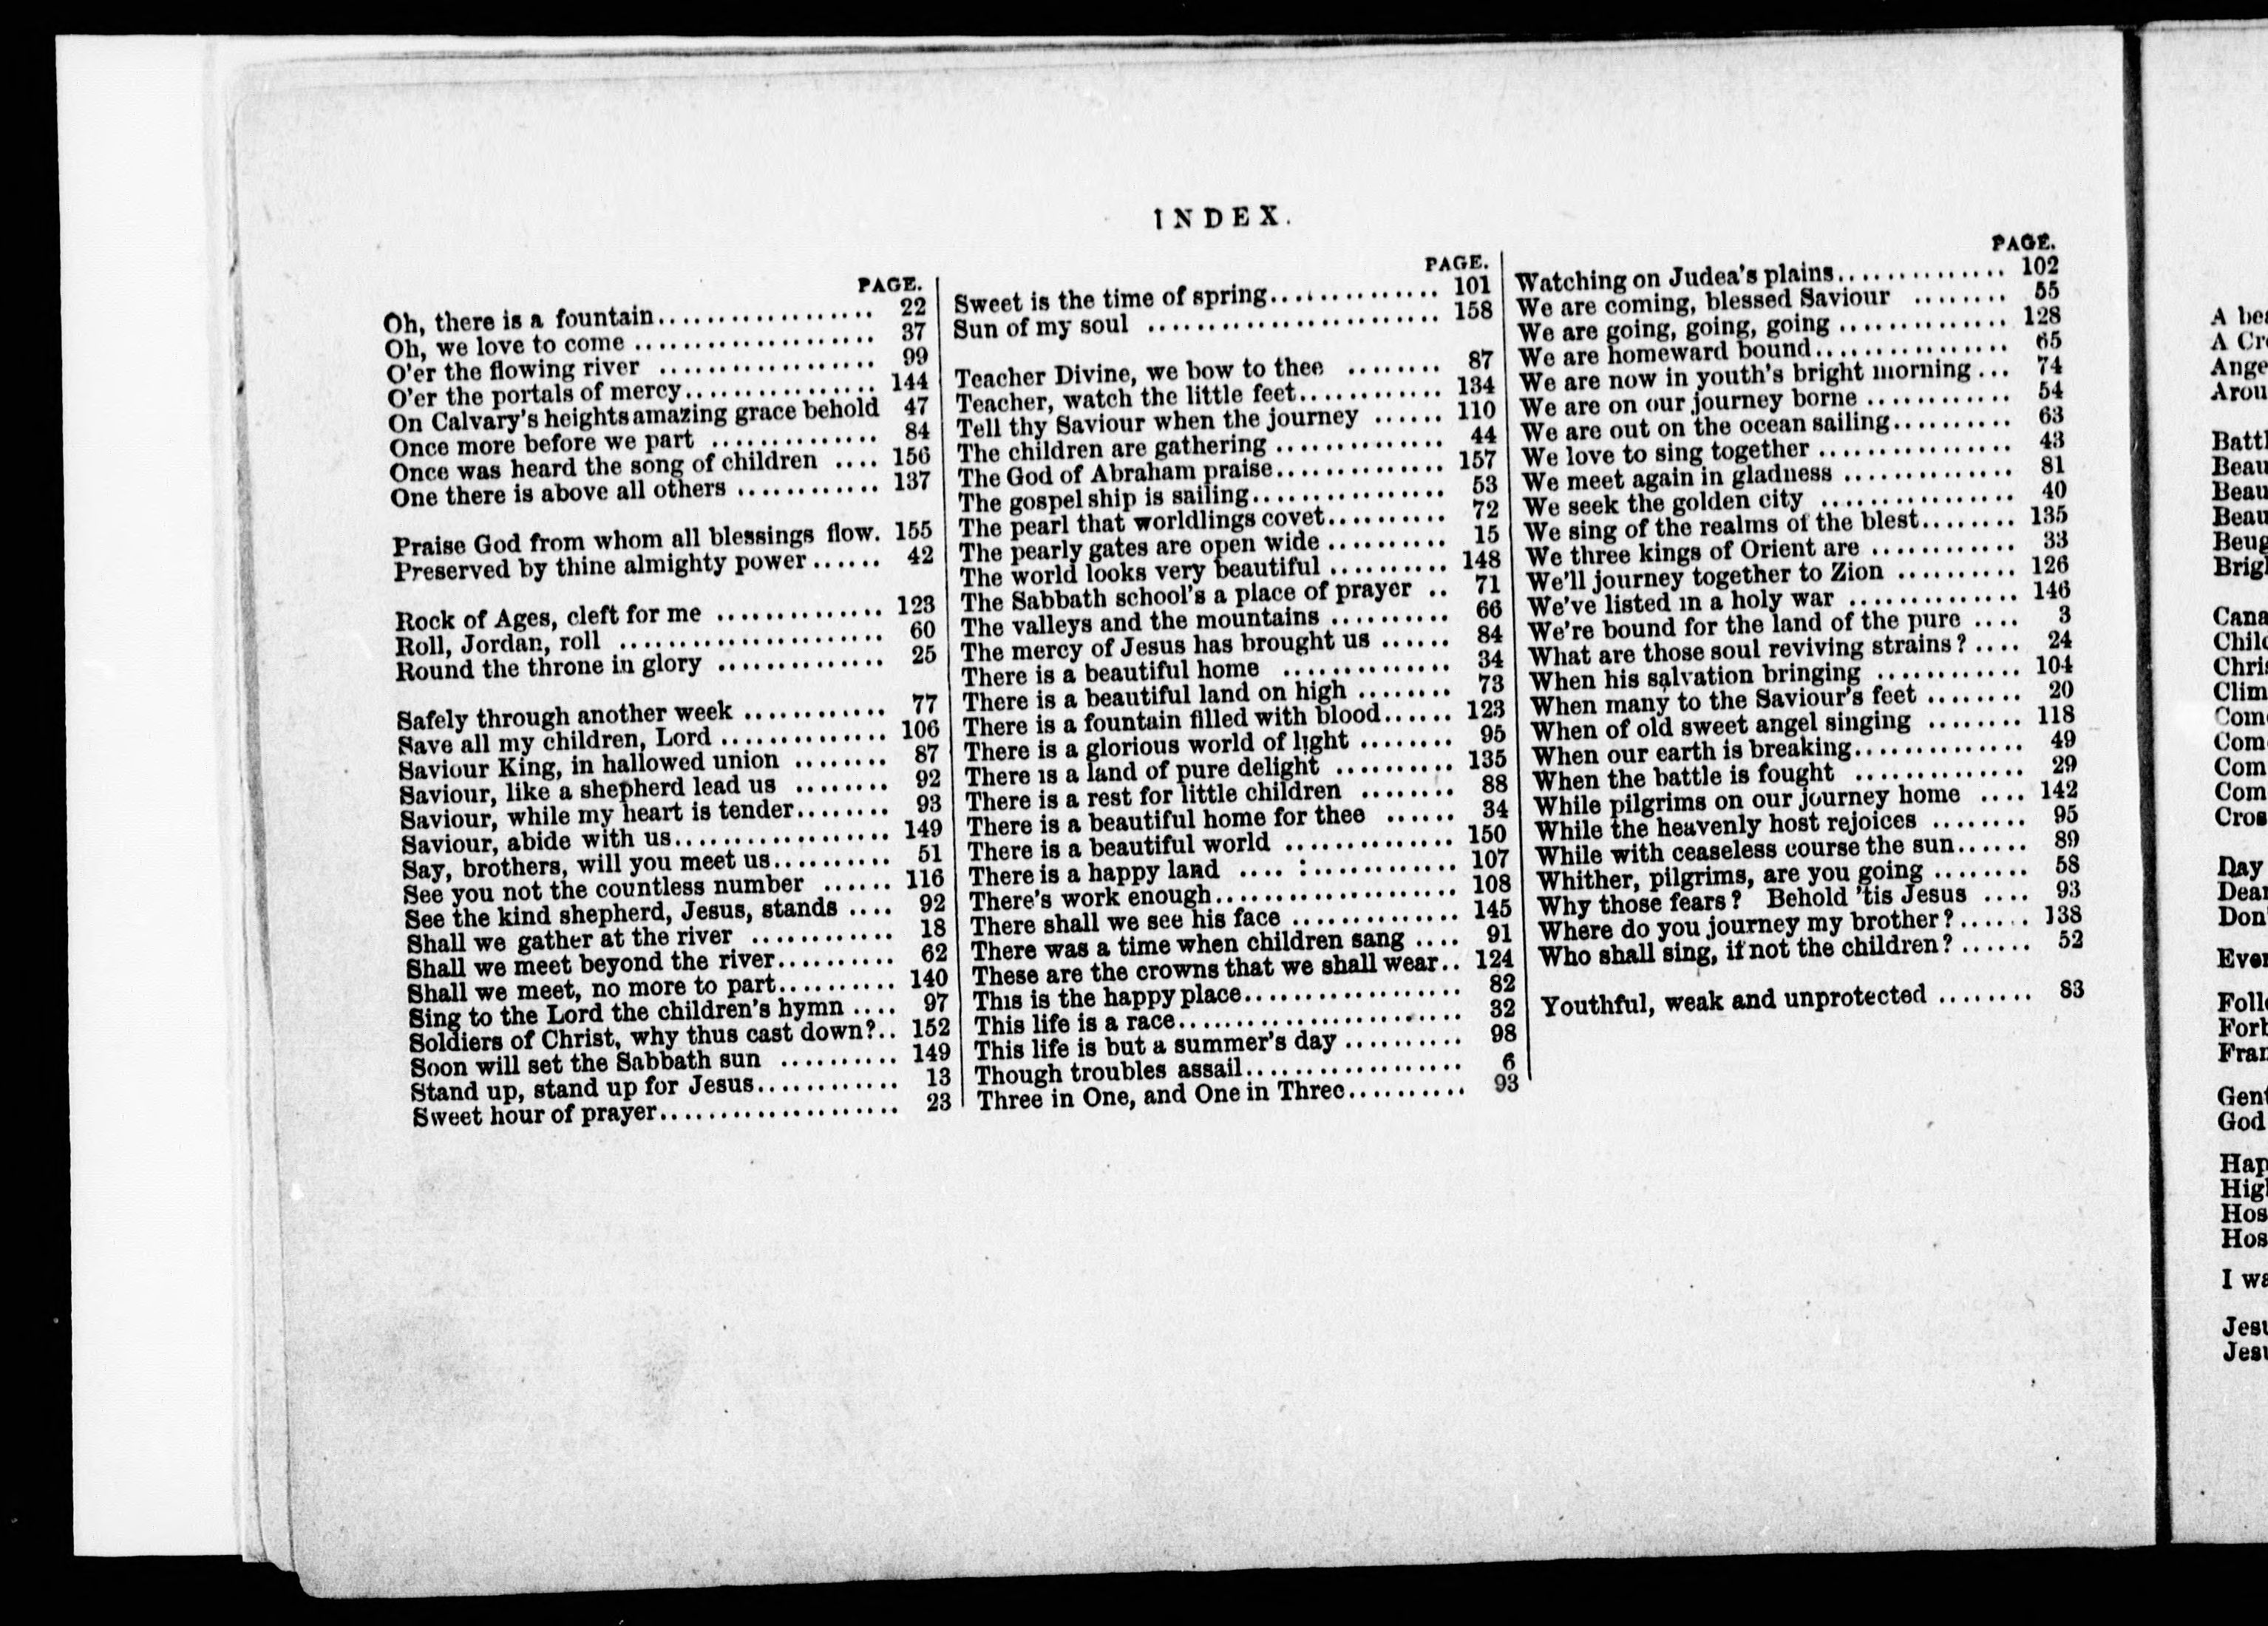 INDEX.
PAGE.
Oh, there is a fountain.................. 22
Oh, we love to come .................... 37
O'er the flowing river .................. 99
O'er the portals of mercy................ 144
On Calvary's heights amazing grace behold 47
Once more before we part .............. 84
Once was heard the song of children .... 156
One there is above all others ............ 137
Praise God from whom all blessings flow. 155
Preserved by thine almighty power ...... 42
Rock of Ages, cleft for me .............. 123
Roll, Jordan, roll ...................... 60
Round the throne in glory .............. 25
Safely through another week ............ 77
Save all my children, Lord .............. 106
Saviour King, in hallowed union ........ 87
Saviour, like a shepherd lead us ........ 92
Saviour, while my heart is tender........ 93
Saviour, abide with us.................. 149
Say, brothers, will you meet us.......... 51
See you not the countless number ...... 116
See the kind shepherd, Jesus, stands .... 92
Shall we gather at the river ............ 18
Shall we meet beyond the river.......... 62
Shall we meet, no more to part.......... 140
Sing to the Lord the children's hymn .... 97
Soldiers of Christ, why thus cast down?.. 152
Soon will set the Sabbath sun .......... 149
Stand up, stand up for Jesus............ 13
Sweet hour of prayer.................... 23
PAGE.
Sweet is the time of spring.............. 101
Sun of my soul ........................ 158
Teacher Divine, we bow to thee ........ 87
Teacher, watch the little feet............ 134
Tell thy Saviour when the journey ...... 110
The children are gathering .............. 44
The God of Abraham praise.............. 157
The gospel ship is sailing................ 53
The pearl that worldlings covet.......... 72
The pearly gates are open wide .......... 15
The world looks very beautiful .......... 148
The Sabbath school's a place of prayer .. 71
The valleys and the mountains .......... 66
The mercy of Jesus has brought us ...... 84
There is a beautiful home .............. 34
There is a beautiful land on high ........ 73
There is a fountain filled with blood...... 123
There is a glorious world of light ........ 95
There is a land of pure delight .......... 135
There is a rest for little children ........ 88
There is a beautiful home for thee ...... 34
There is a beautiful world .............. 150
There is a happy land .... :............ 107
There's work enough.................... 108
There shall we see his face .............. 145
There was a time when children sang .... 91
These are the crowns that we shall wear.. 124
This is the happy place.................. 82
This life is a race........................ 32
This life is but a summer's day .......... 98
Though troubles assail.................. 6
Three in One, and One in Three.......... 93
PAGE.
Watching on Judea's plains.............. 102
We are coming, blessed Saviour ........ 55
We are going, going, going .............. 128
We are homeward bound................ 65
We are now in youth's bright morning ... 74
We are on our journey borne ............ 54
We are out on the ocean sailing.......... 63
We love to sing together ................ 43
We meet again in gladness .............. 81
We seek the golden city ................ 40
We sing of the realms of the blest........ 135
We three kings of Orient are ............ 33
We'll journey together to Zion .......... 126
We've listed in a holy war .............. 146
We're bound for the land of the pure .... 3
What are those soul reviving strains? .... 24
When his salvation bringing ............ 104
When many to the Saviour's feet ........ 20
When of old sweet angel singing ........ 118
When our earth is breaking.............. 49
When the battle is fought .............. 29
While pilgrims on our journey home .... 142
While the heavenly host rejoices ........ 95
While with ceaseless course the sun...... 89
Whither, pilgrims, are you going ........ 58
Why those fears? Behold 'tis Jesus .... 93
Where do you journey my brother? ...... 138
Who shall sing, if not the children? ...... 52
Youthful, weak and unprotected ........ 83